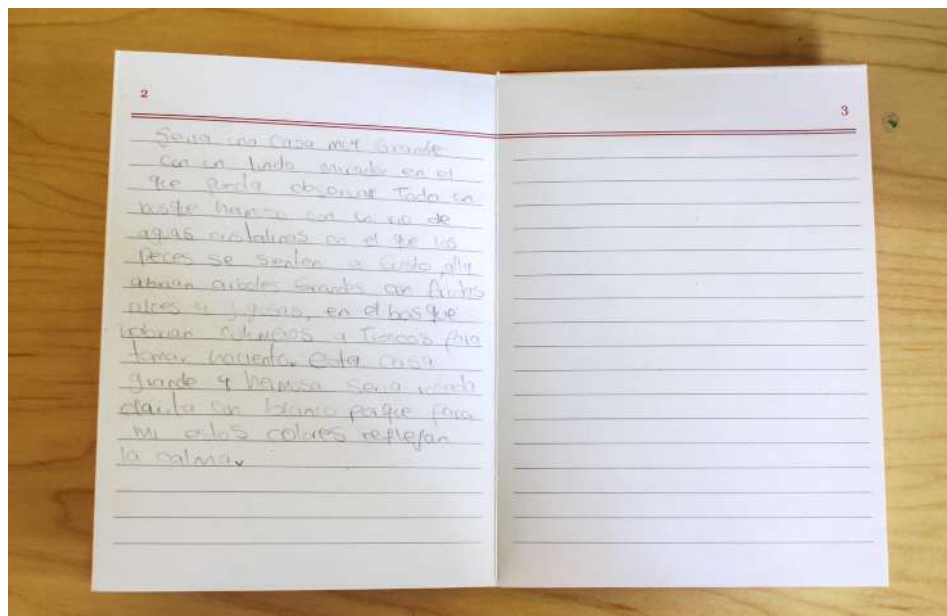 2
Seria una casa muy Grande
con un lindo mirador en el
que pueda observar Todo un
bosque hermoso con un rio de
aguas cristalinas en el que los
peces se sienten a Gusto, alli
abrian arboles Grandes con frutos
y jugosas, en el bosque
habrian o Troncos para
tomar haciento. Esta casa
grande y hermosa seria rosada
clarita con blanco porque para
mi estos colores reflejan
la calma.
3